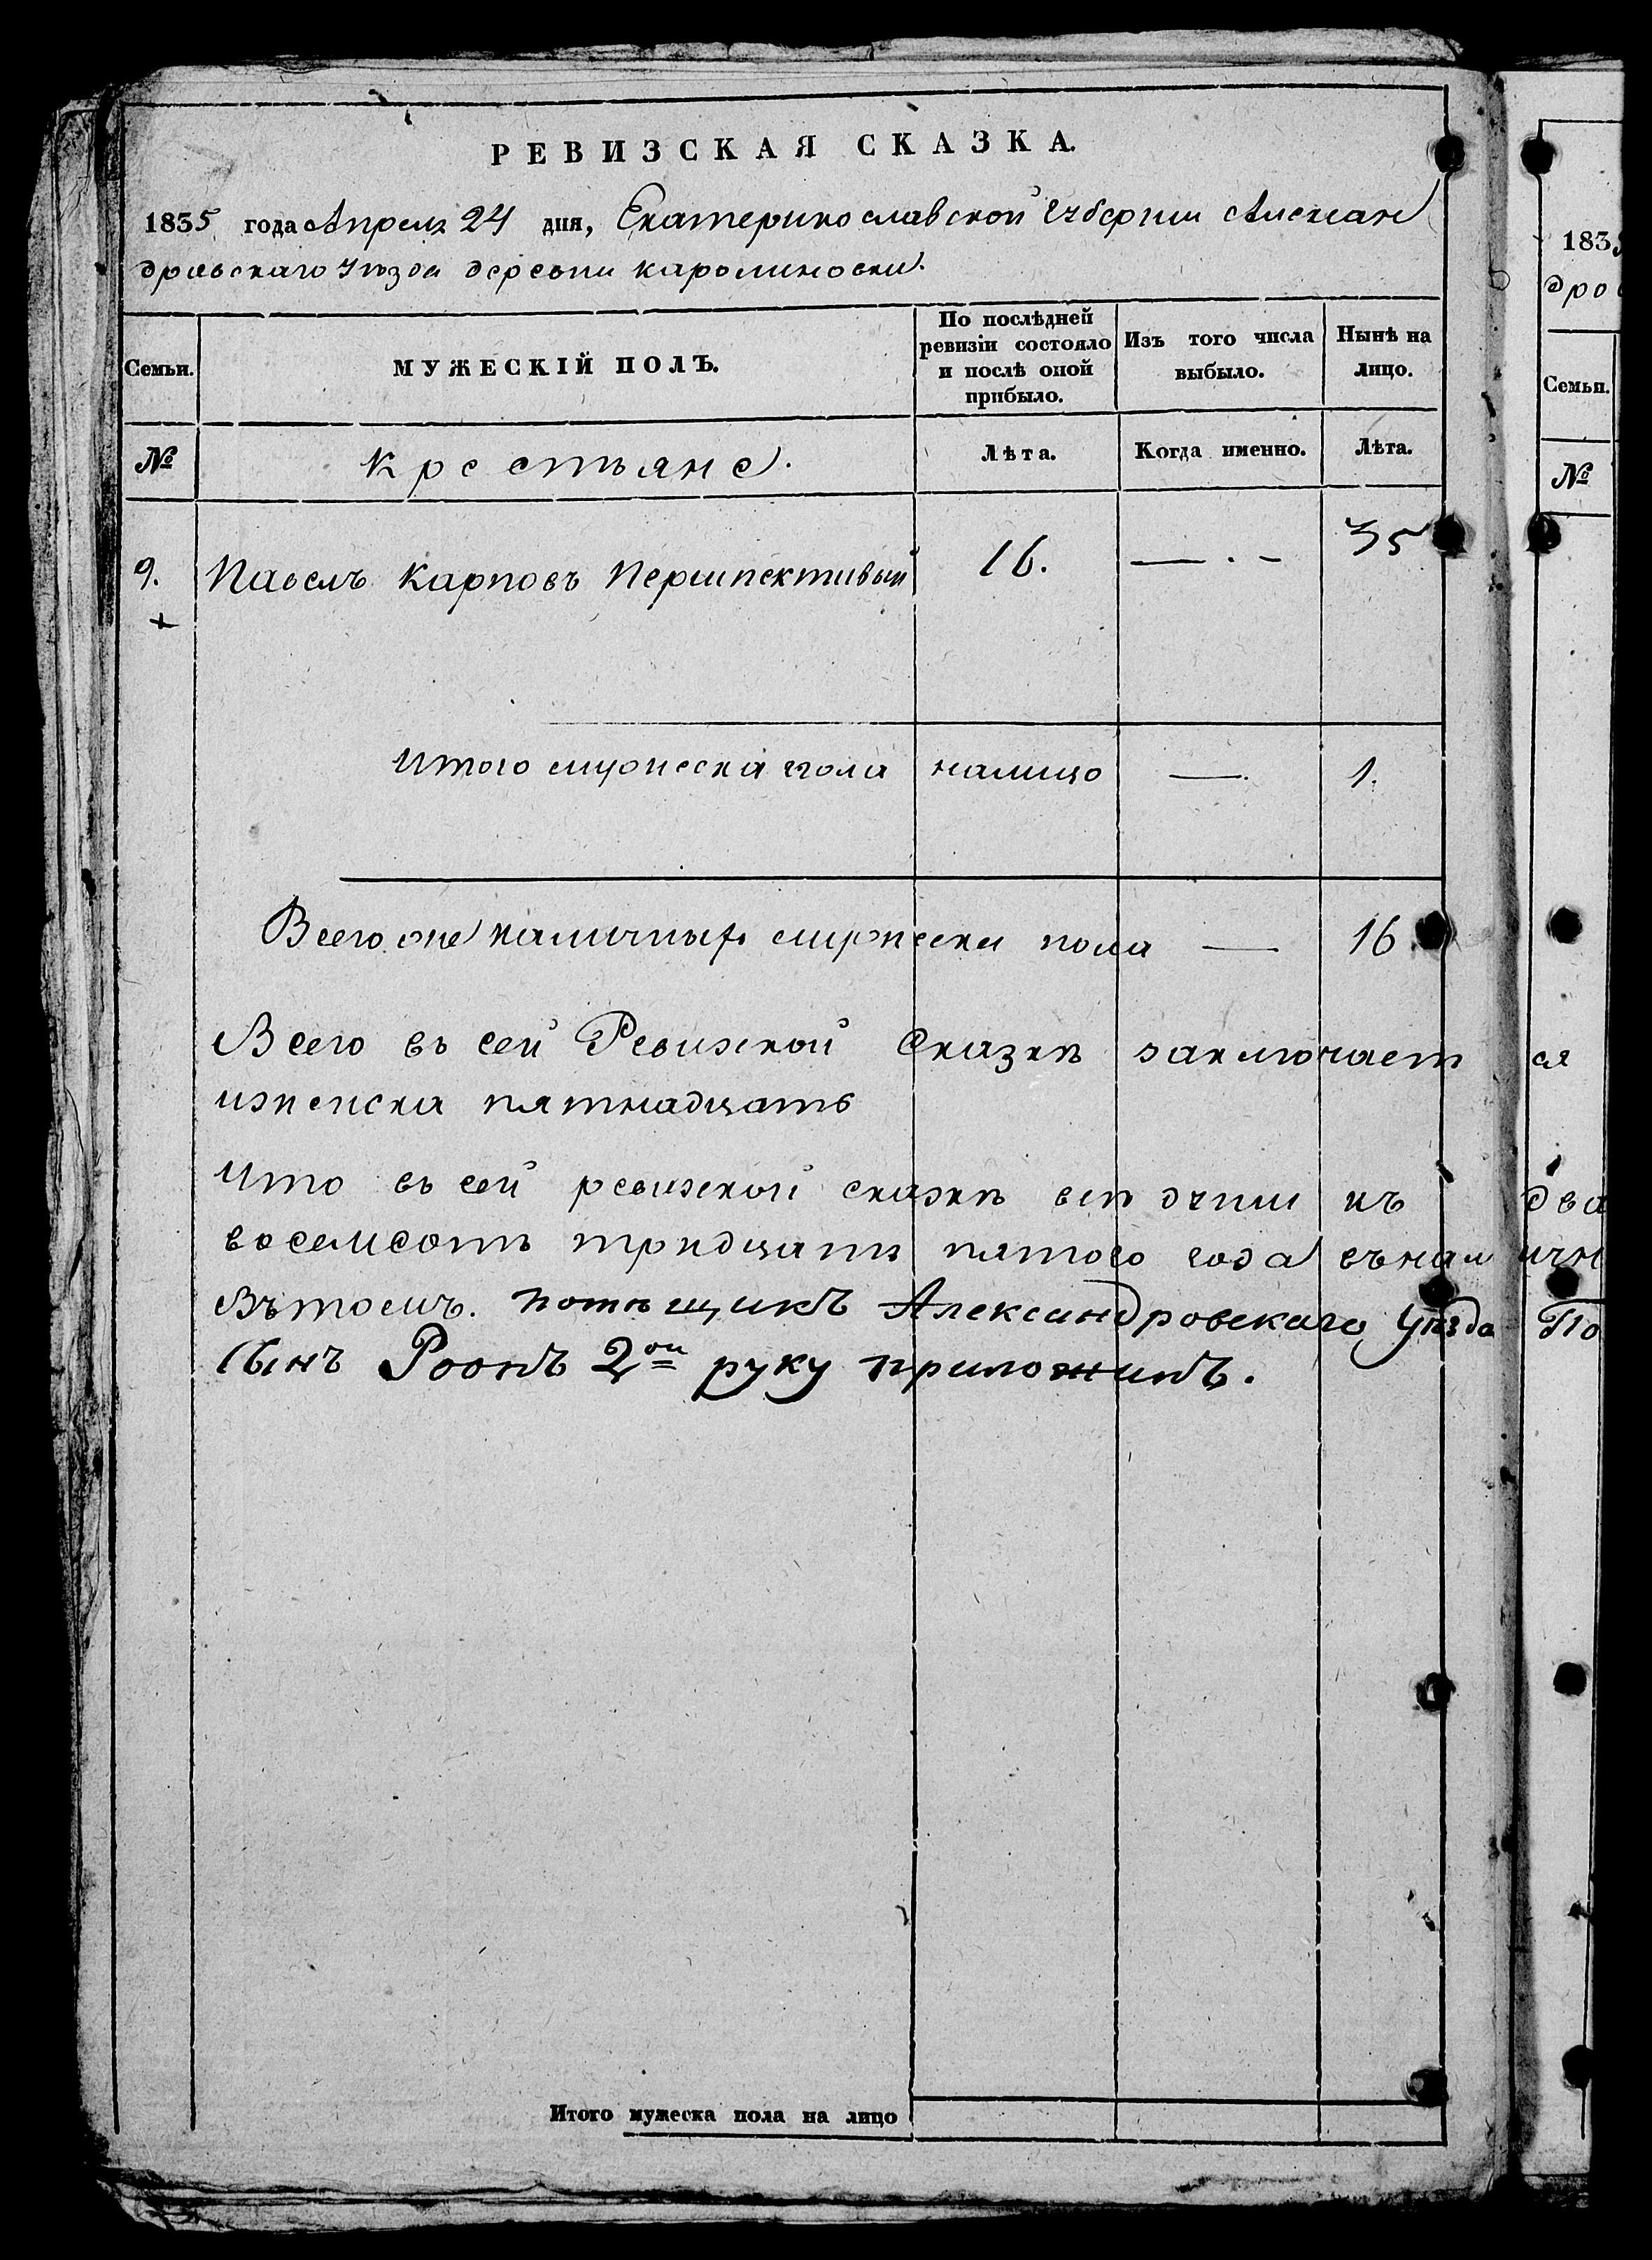 РЕВИЗСКАЯ СКАЗКА.
1835 года Апреля 24 дня, Екатеринославской Губернии Алексан
дровскаго Уѣзда деревни каролиновки.
Семьи.
МУЖЕСКІЙ ПОЛЪ.
По послѣдней ревизіи состояло и послѣ оной прибыло.
Изъ того числа выбыло.
Нынѣ на лицо.
№
крестьяне.
Лѣта.
Когда именно.
Лѣта.
9. Павелъ Карповъ Першпективый 16. — . – 35
+
Итого мужеска пола налицо — . 1.
Всего наличныхъ мужеска пола — 16
Всего въ сей Ревизской Сказкѣ заключает ся
женска пятнадцать
Что въ сей ревизской сказкѣ всѣ души къ два
восемсотъ тридцать пятого года съ налич
Въ томъ. помѣщикъ Александровскаго Уѣзда По
сынъ 2ой руку приложилъ.
Итого мужеска пола на лицо
183
дро
Семьи.
№